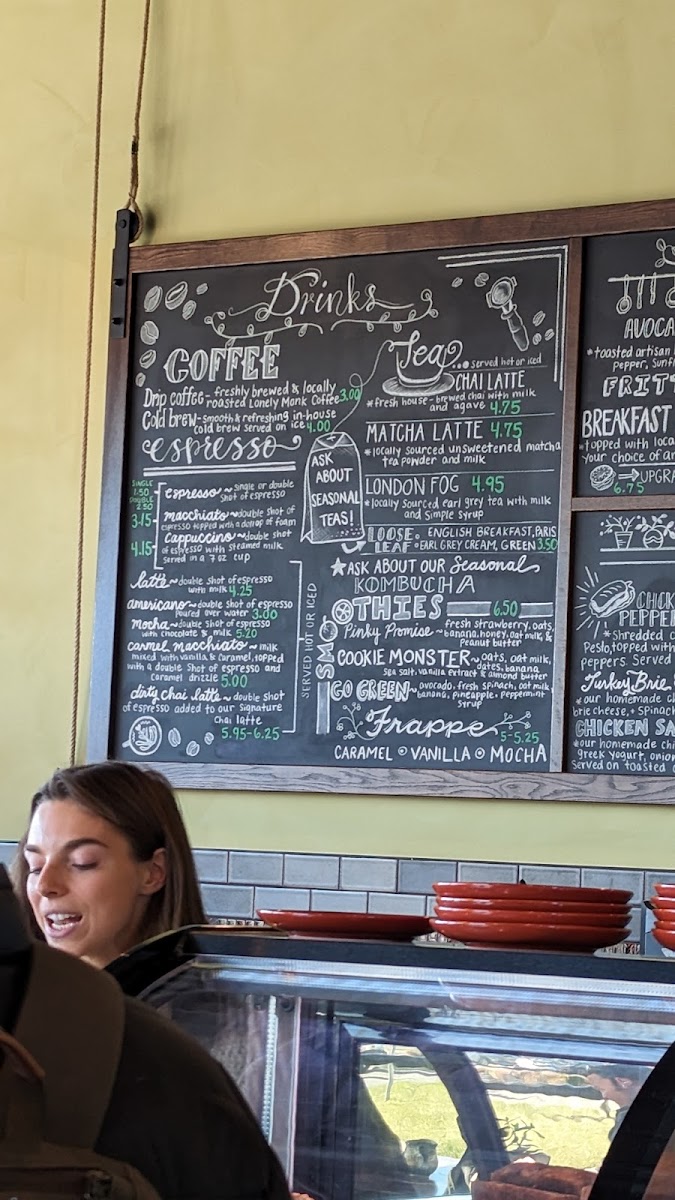 Drinks
COFFEE
Drip coffee - freshly brewed & locally
roasted Lonely Monk Coffee 3.00
Cold brew - smooth & refreshing in-house
cold brew served on ice 4.00
espresso
SINGLE
1.50
DOUBLE
2.50
espresso ~ single or double
shot of espresso
3.15
macchiato ~ double shot of
espresso topped with a dollop of foam
4.15
Cappuccino ~ double shot
of espresso with steamed milk
served in a 7 oz cup
latte ~ double shot of espresso
with milk 4.25
americano ~ double shot of espresso
poured over water 3.00
Mocha ~ double shot of espresso
with chocolate & milk 5.20
carmel macchiato ~ milk
mixed with vanilla & caramel, topped
with a double shot of espresso and
caramel drizzle 5.00
dirty chai latte ~ double shot
of espresso added to our signature
chai latte
5.95-6.25
SERVED HOT OR ICED
ASK
ABOUT
SEASONAL
TEAS!
Tea
served hot or iced
CHAI LATTE
*fresh house-brewed chai with milk
and agave 4.75
MATCHA LATTE 4.75
*locally sourced unsweetened matcha
tea powder and milk
LONDON FOG 4.95
*locally sourced earl grey tea with milk
and simple syrup
LOOSE LEAF
ENGLISH BREAKFAST, PARIS
EARL GREY CREAM, GREEN 3.50
ASK ABOUT OUR Seasonal
KOMBUCHA
SMOOTHIES 6.50
Pinky Promise ~ fresh strawberry, oats,
banana, honey, oat milk, &
peanut butter
COOKIE MONSTER ~ oats, oat milk,
dates, banana,
sea salt, vanilla extract & almond butter
GO GREEN ~ avocado, fresh spinach, oat milk
banana, pineapple, peppermint
syrup
Frappe 5-5.25
CARAMEL VANILLA MOCHA
AVOCA
*toasted artisan
pepper, sunf
FRITT
BREAKFAST
*topped with loca
your choice of a
UPGRA
6.75
CHICK
PEPPE
*Shredded c
Pesto, topped with
peppers. Served
Turkey Brie
*our homemade c
brie cheese, + spinac
CHICKEN SA
*our homemade chi
greek yogurt, onio
Served on toasted